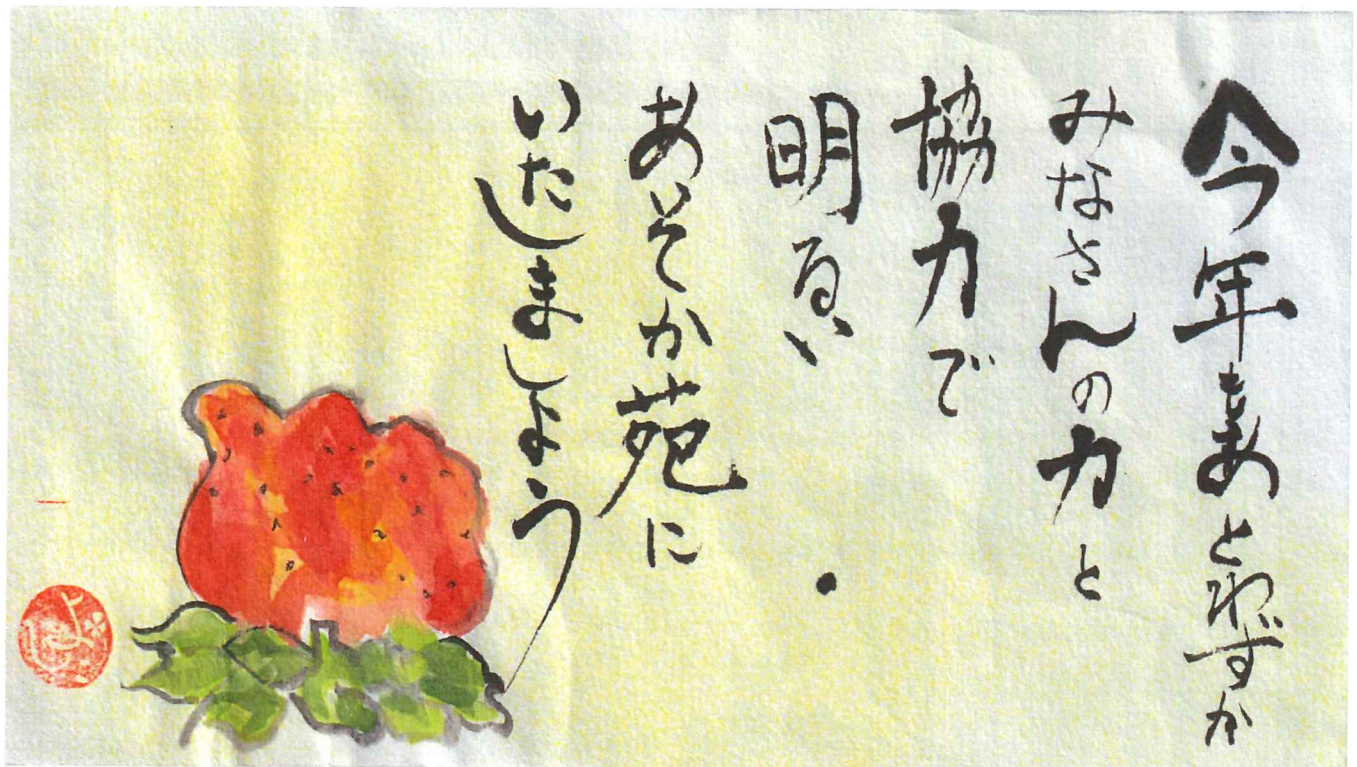 今年もあとわずか
みなさんの力と
協力で
明るい
あそか苑に
いたしましょう